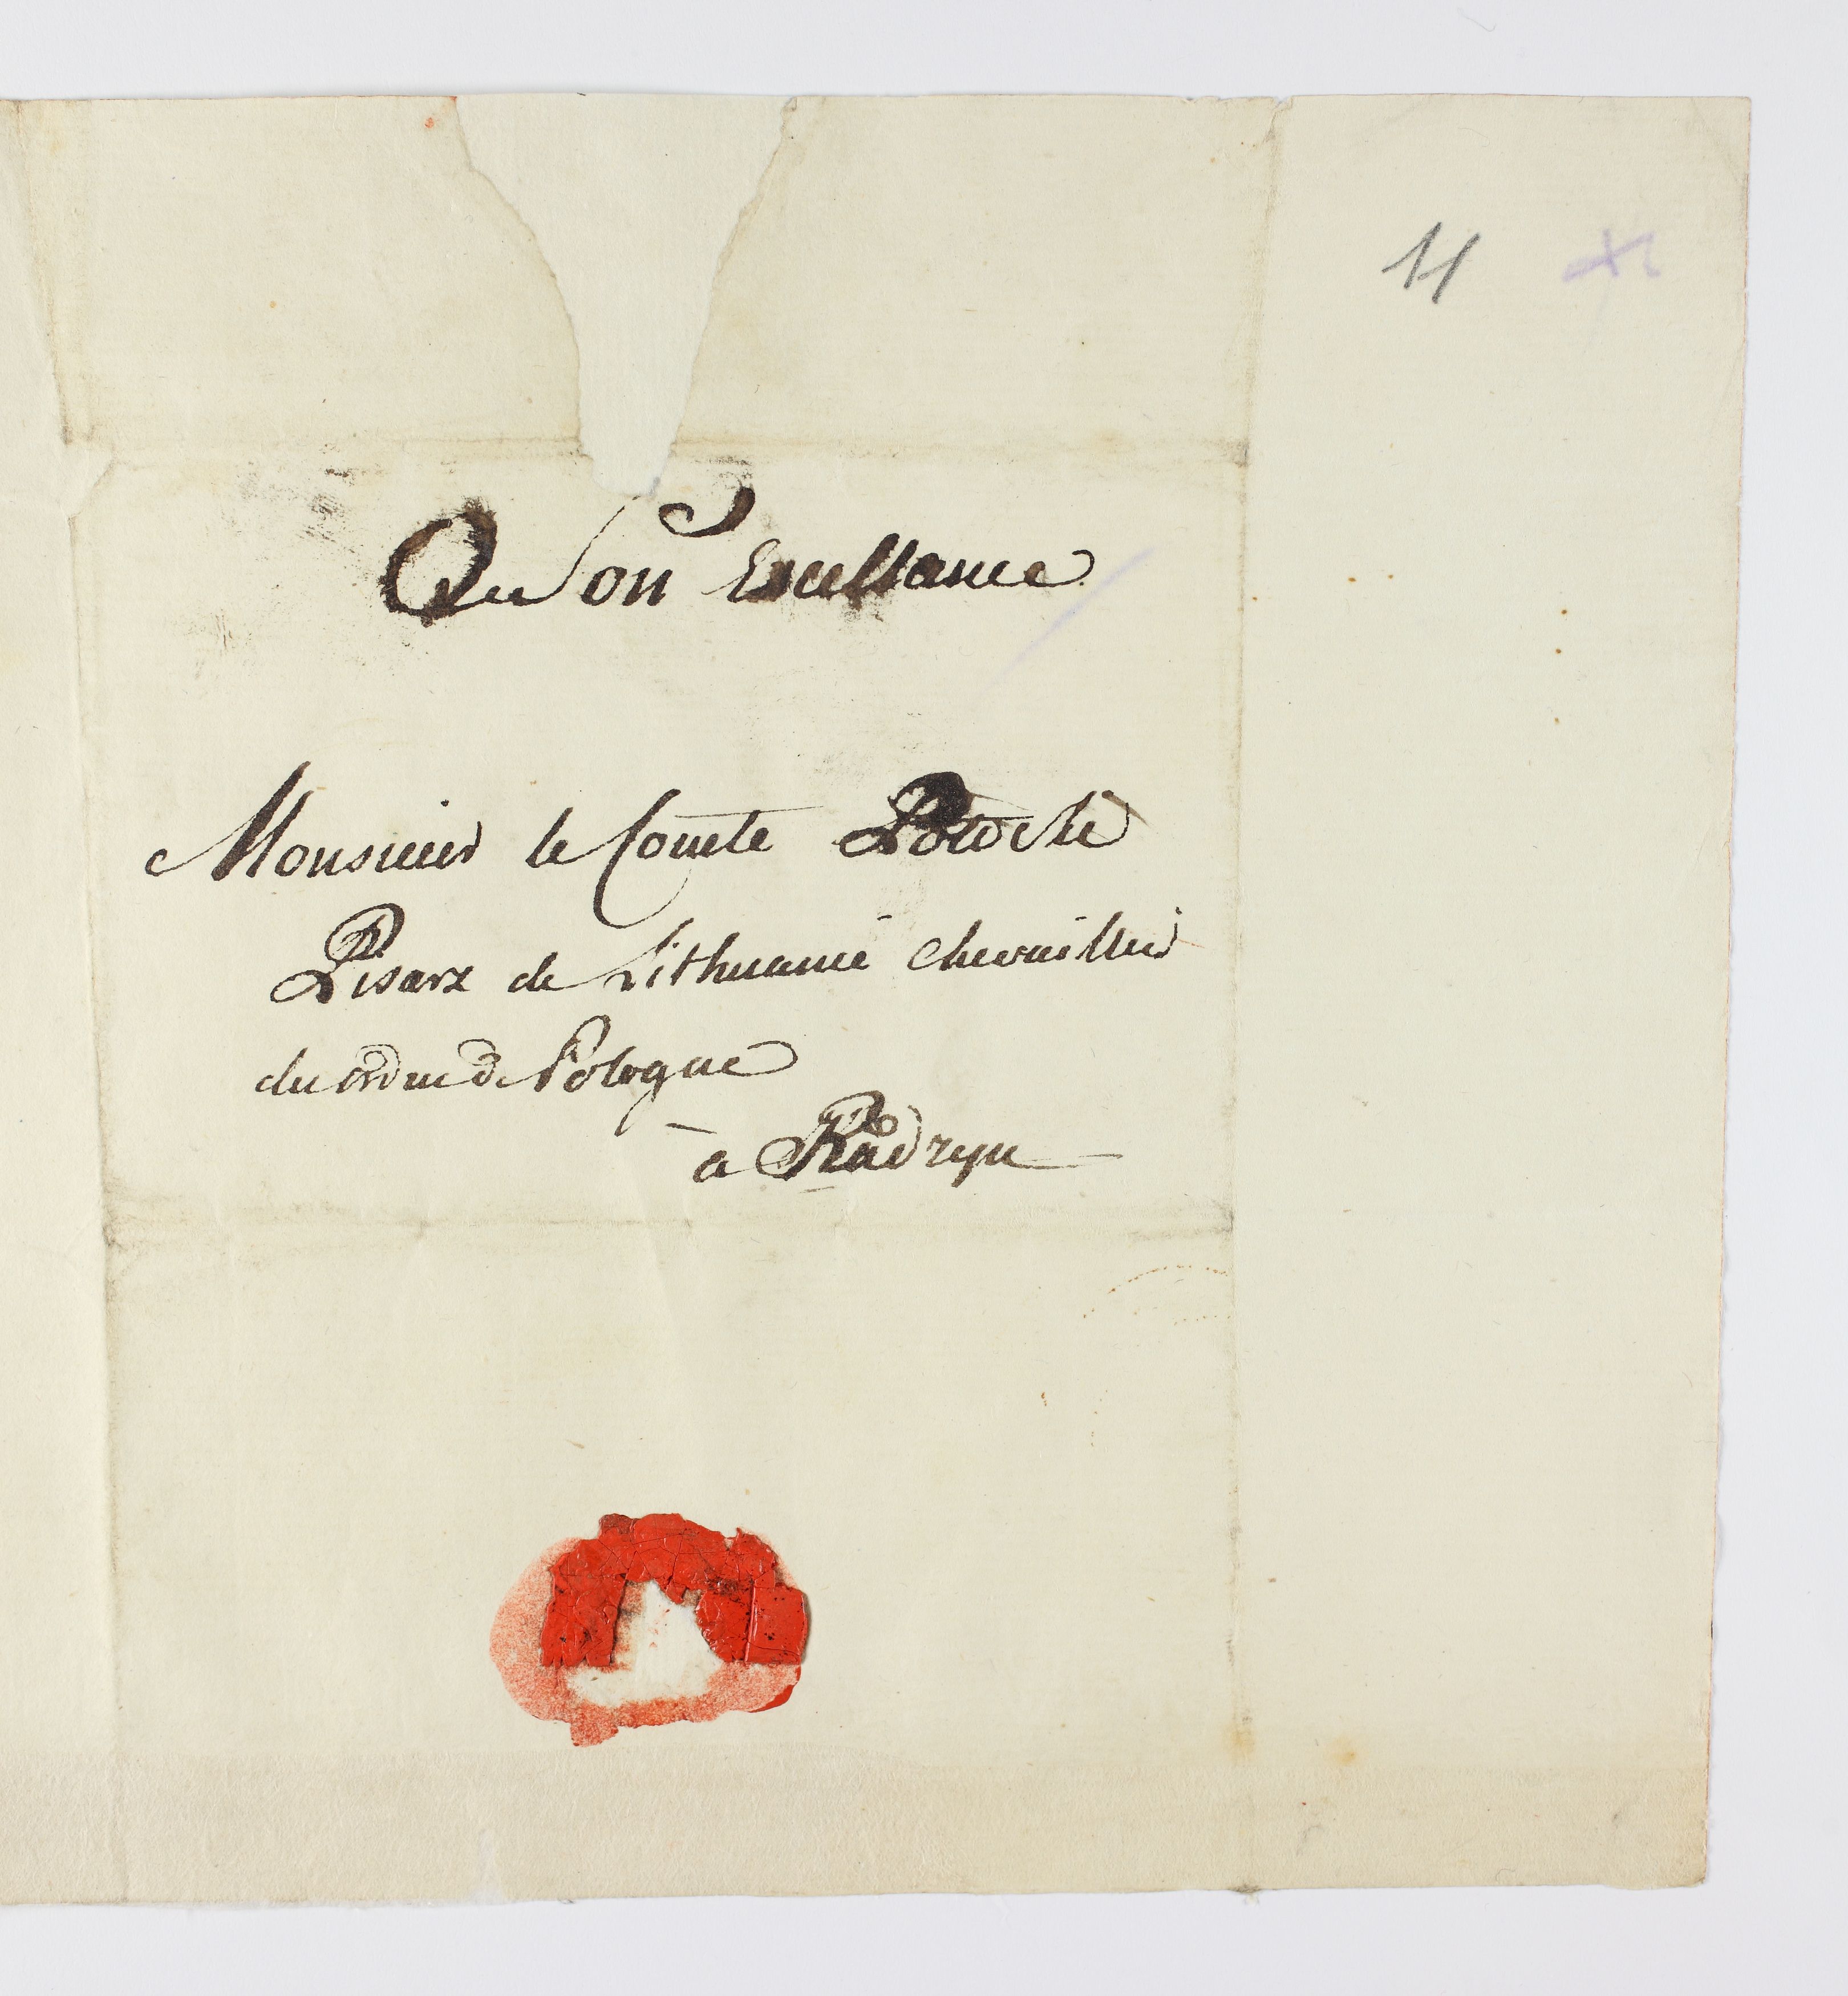 11
A Son Excellance
Monsieur le Comte Potocki
Pisarz de Lithuanie Chevaillier
du ordre de Pologne
a Radzyn